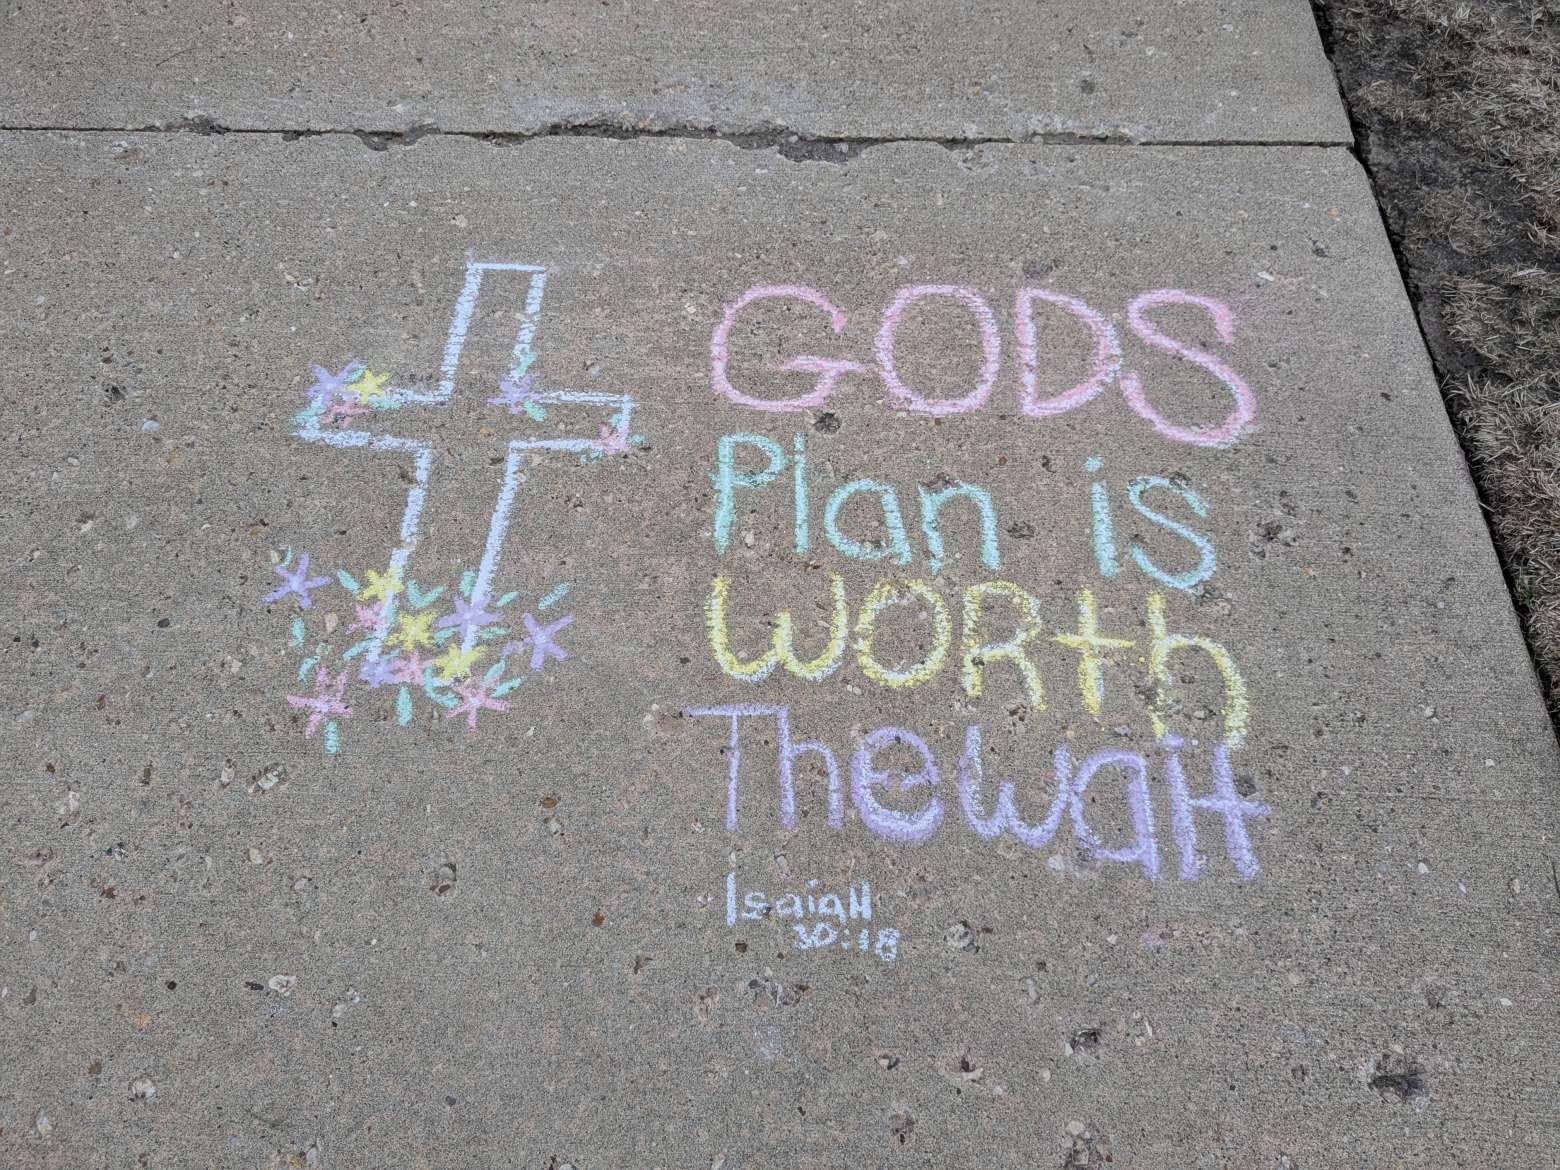 GODS
Plan is
WORth
The wait
IsaiaH
30:18